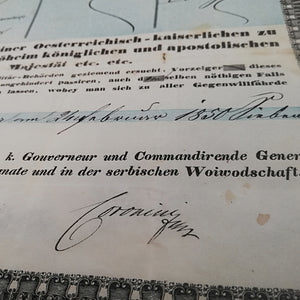 iner Oesterreichisch-kaiserlichen zu
öheim königlichen und apostolischen
Majestät etc. etc.
litär-Behörden geziemend ersucht, Vorzeiger dieses
ungehindert Passiren, auch selben nöthigen Falls
lassen, wogegen man sich zu aller Gegenwillfährde
1850
k. Gouverneur und Commandirende Gener
nate und in der serbischen Woiwodschaft.
Coronini